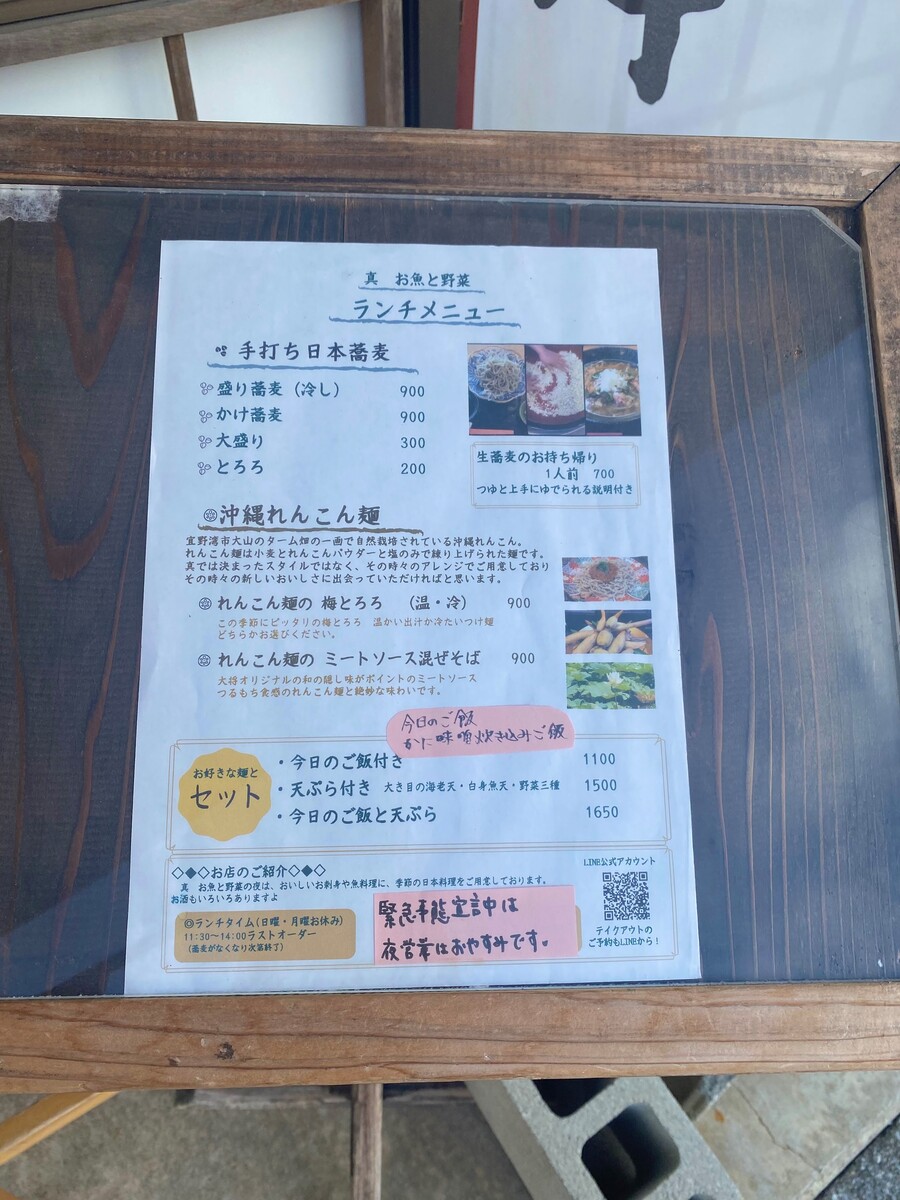 真 お魚と野菜
ランチメニュー
手打ち日本蕎麦
盛り蕎麦（冷し） 900
かけ蕎麦 900
大盛り 300
とろろ 200
生蕎麦のお持ち帰り
1人前 700
つゆと上手にゆでられる説明付き
沖縄れんこん麺
宜野湾市大山のターム畑の一画で自然栽培されている沖縄れんこん。
れんこん麺は小麦とれんこんパウダーと塩のみで練り上げられた麺です。
真では決まったスタイルではなく、その時々のアレンジでご用意しており
その時々の新しいおいしさに出会っていただければと思います。
れんこん麺の 梅とろろ （温・冷） 900
この季節にピッタリの梅とろろ 温かい出汁か冷たいつけ麺
どちらかお選びください。
れんこん麺の ミートソース混ぜそば 900
大将オリジナルの和の隠し味がポイントのミートソース
つるもち食感のれんこん麺と絶妙な味わいです。
今日のご飯
かに味噌炊き込みご飯
お好きな麺と
セット
・今日のご飯付き 1100
・天ぷら付き 大き目の海老天・白身魚天・野菜三種 1500
・今日のご飯と天ぷら 1650
◇◆◇お店のご紹介◇◆◇
真 お魚と野菜の夜は、おいしいお刺身や魚料理に、季節の日本料理をご用意しております。
お酒もいろいろありますよ
◎ランチタイム(日曜・月曜お休み)
11:30～14:00ラストオーダー
（蕎麦がなくなり次第終了）
緊急事態宣言中は
夜営業はおやすみです。
LINE公式アカウント
テイクアウトの
ご予約もLINEから！